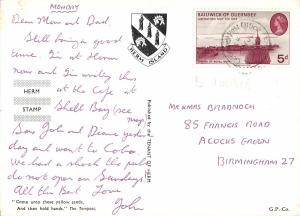 MONDAY
Dear Mum and Dad
Still having a good
time. I'm at Herm
now and I'm writing this
at the Cafe at
Shell Bay (see
map)
Saw John & Diane yesterday
day and went to Cobo.
We had a shock the pubs
do not open on Sundays
All the Best Love
John
HERM
STAMP
HERM ISLAND
"Come unto these yellow sands,
And then hold hands." The Tempest
Published by the TENANT OF HERM
G.P. Co.
BAILIWICK OF GUERNSEY
5d
MR & MRS BRADNOCK
85 FRANCIS ROAD
ACOCKS GREEN
BIRMINGHAM 27